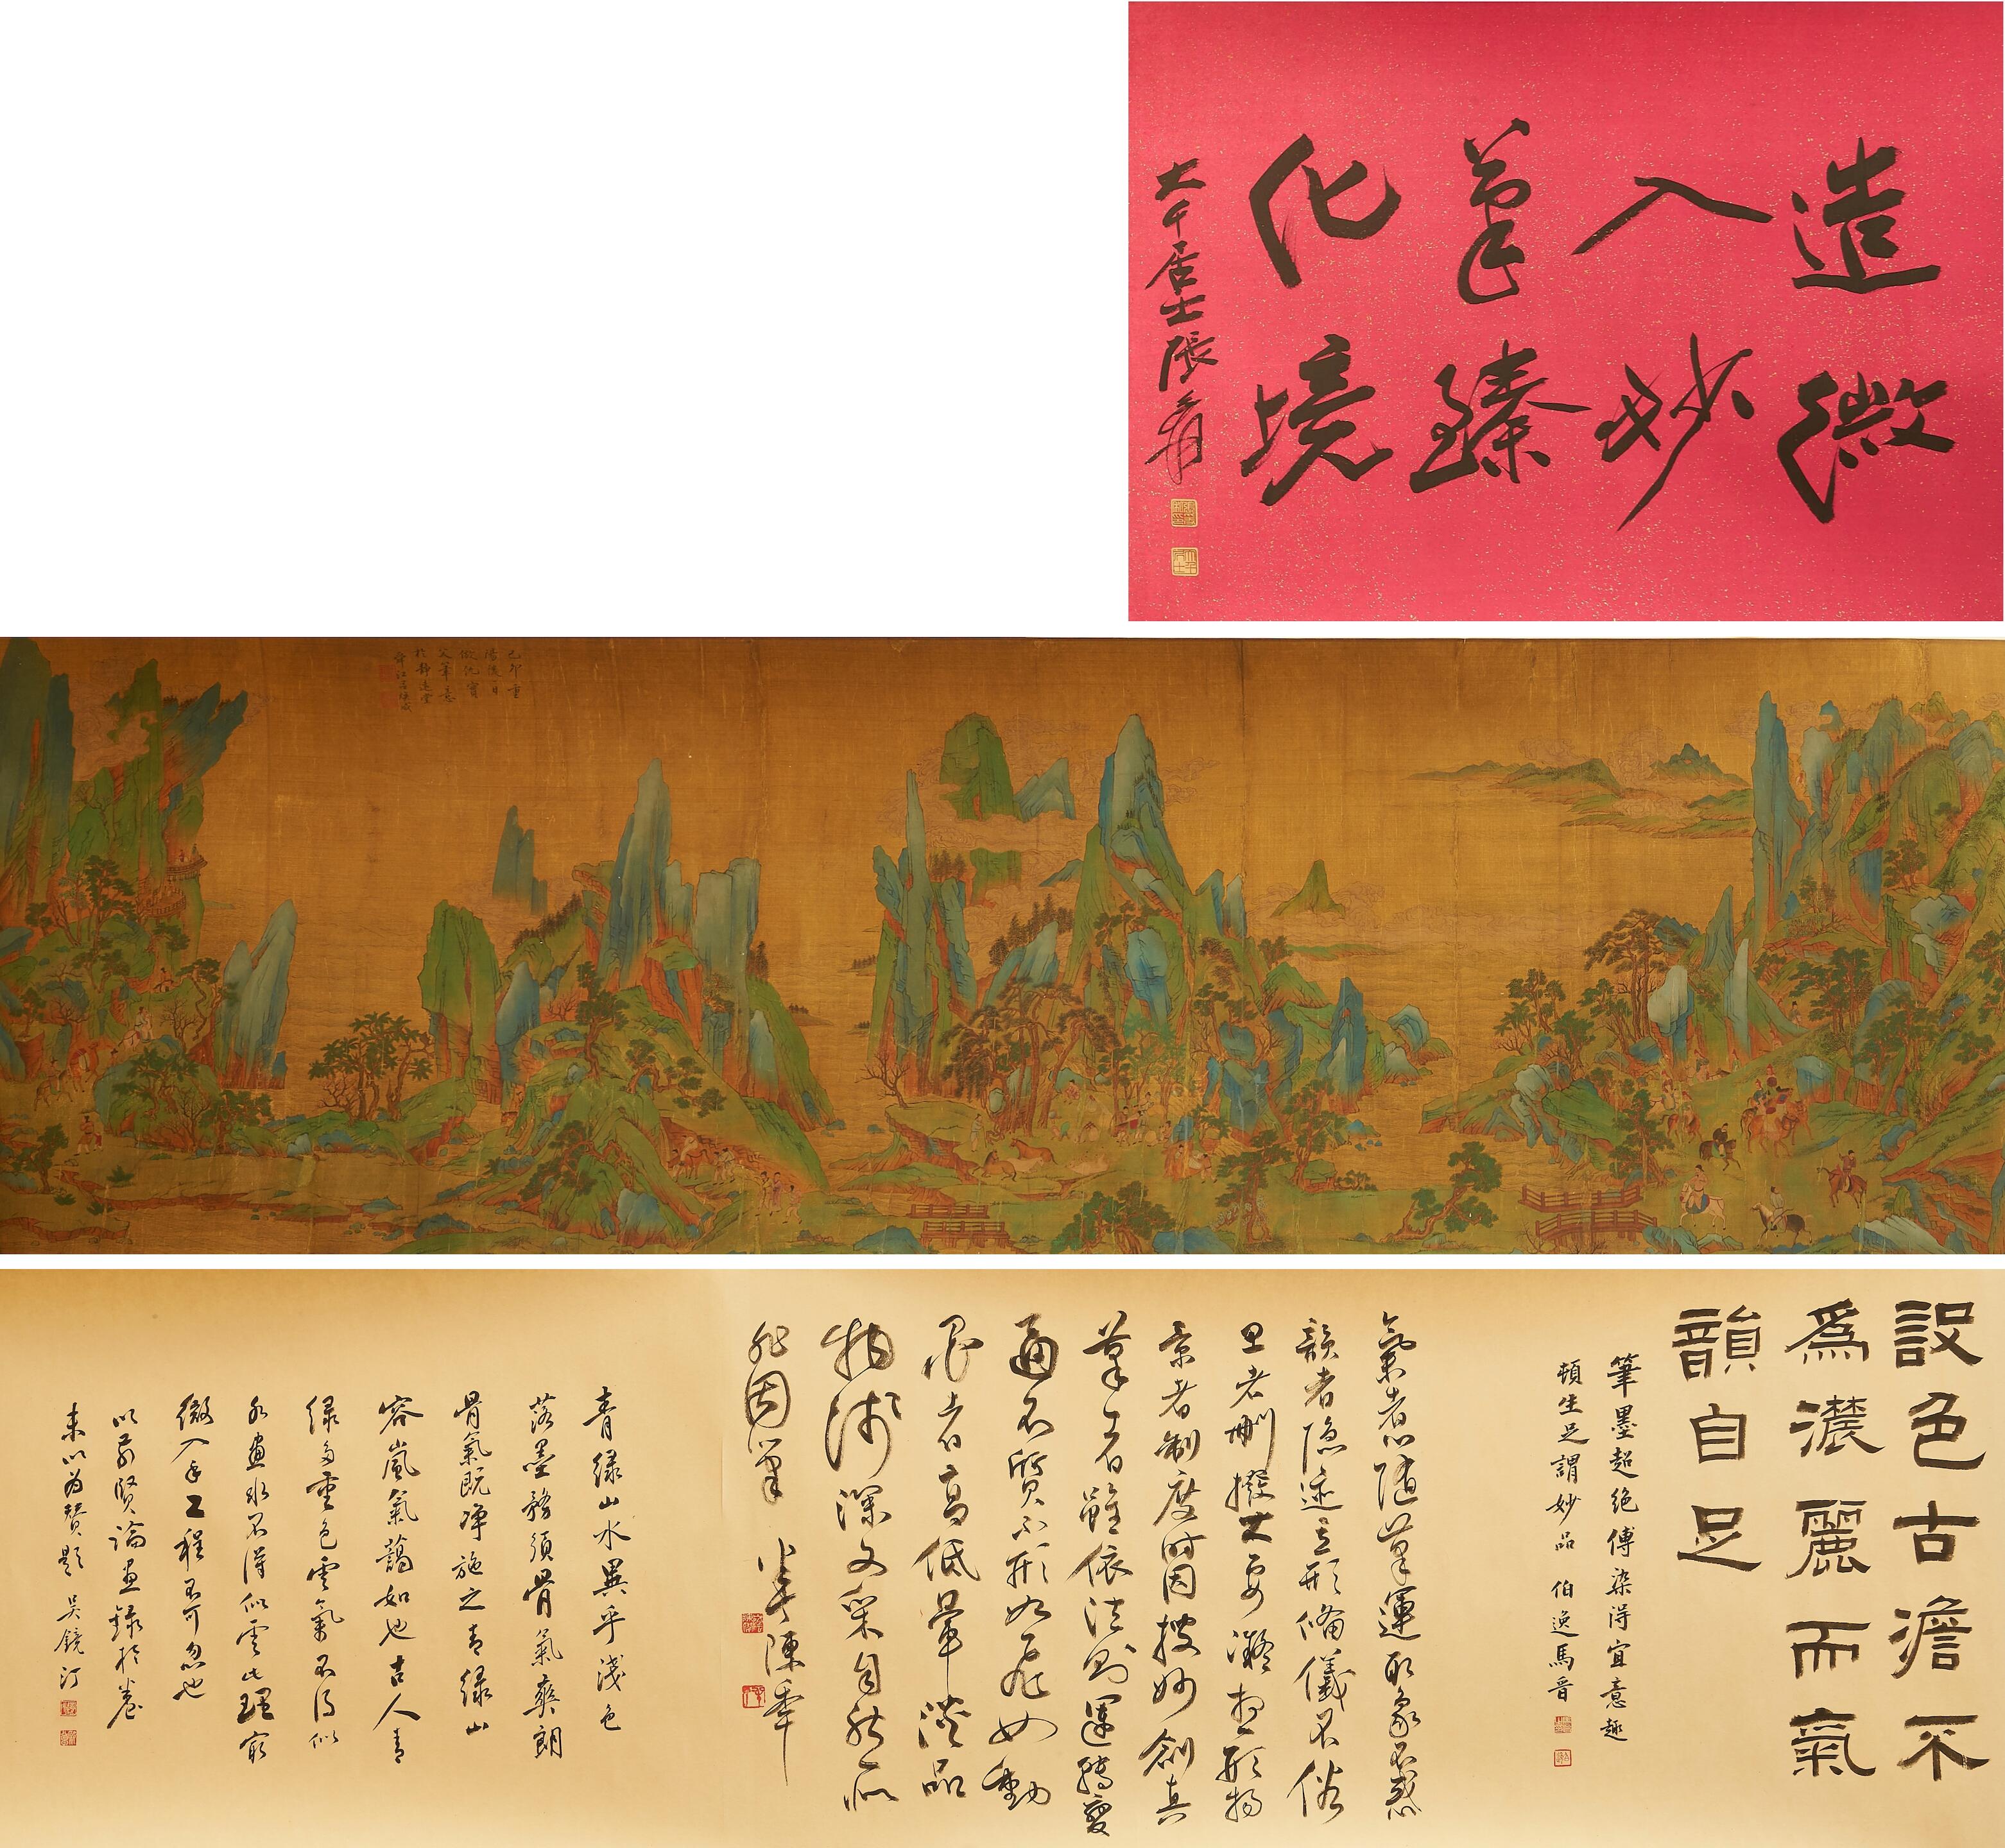 造微
入妙
筆臻
化境
大千居士張爰
己卯重
陽後一日
倣仇實
父筆意
於靜遠堂
設色古澹不
為濃麗而氣
韻自足
筆墨超絕傅染得宜意趣
頓生足謂妙品 伯逸馬晉
氣者心隨筆運取象不惑
韻者隱迹立形備儀不俗
思者刪撥大要凝想形物
景者制度時因搜妙創真
筆者雖依法則運轉變
通不質不形如飛如動
墨者高低暈淡品
物淺深文采自然似
非因筆 半丁陳年
青綠山水異乎淺色
落墨務須骨氣爽朗
骨氣既淨施之青綠山
容嵐氣藹如也古人青
綠多重色雲氣不得似
水畫水不得似雲此理窮
微入手工程不可忽也
以前賢論畫錄於卷
末以為贊題 吳鏡汀